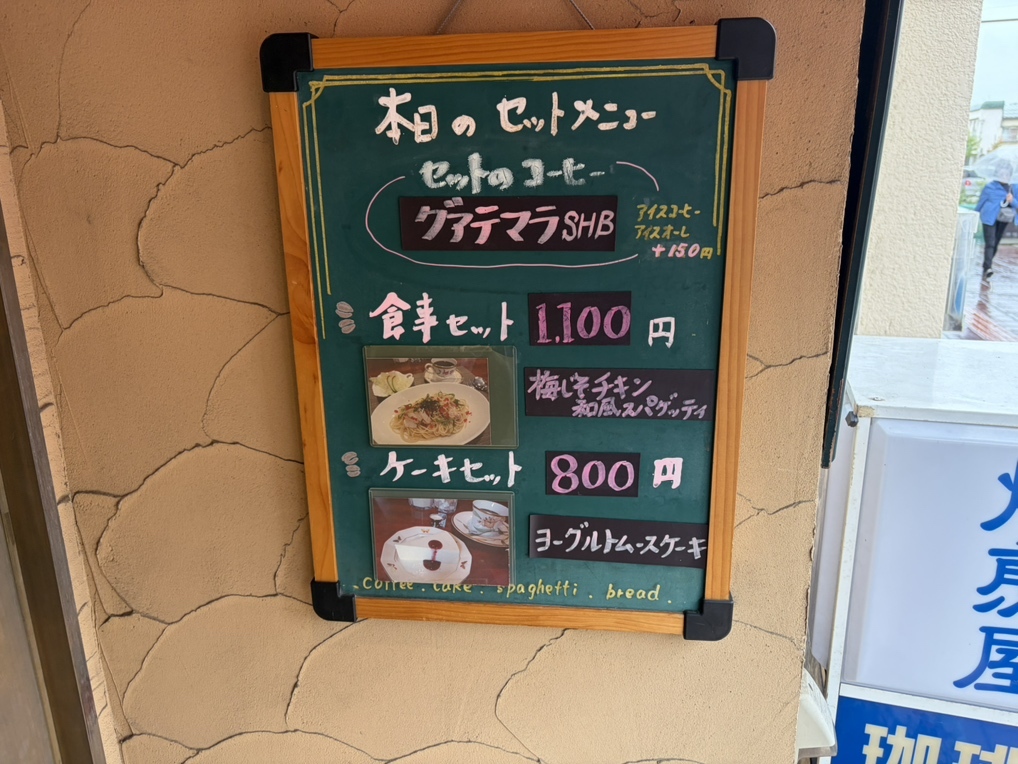 本日のセットメニュー
セットのコーヒー
グアテマラSHB
アイスコーヒー
アイスオーレ
+150円
食事セット 1,100円
梅じそチキン
和風スパゲッティ
ケーキセット 800円
ヨーグルトムースケーキ
.Coffee.cake.spaghetti.bread.
煎屋
珈琲